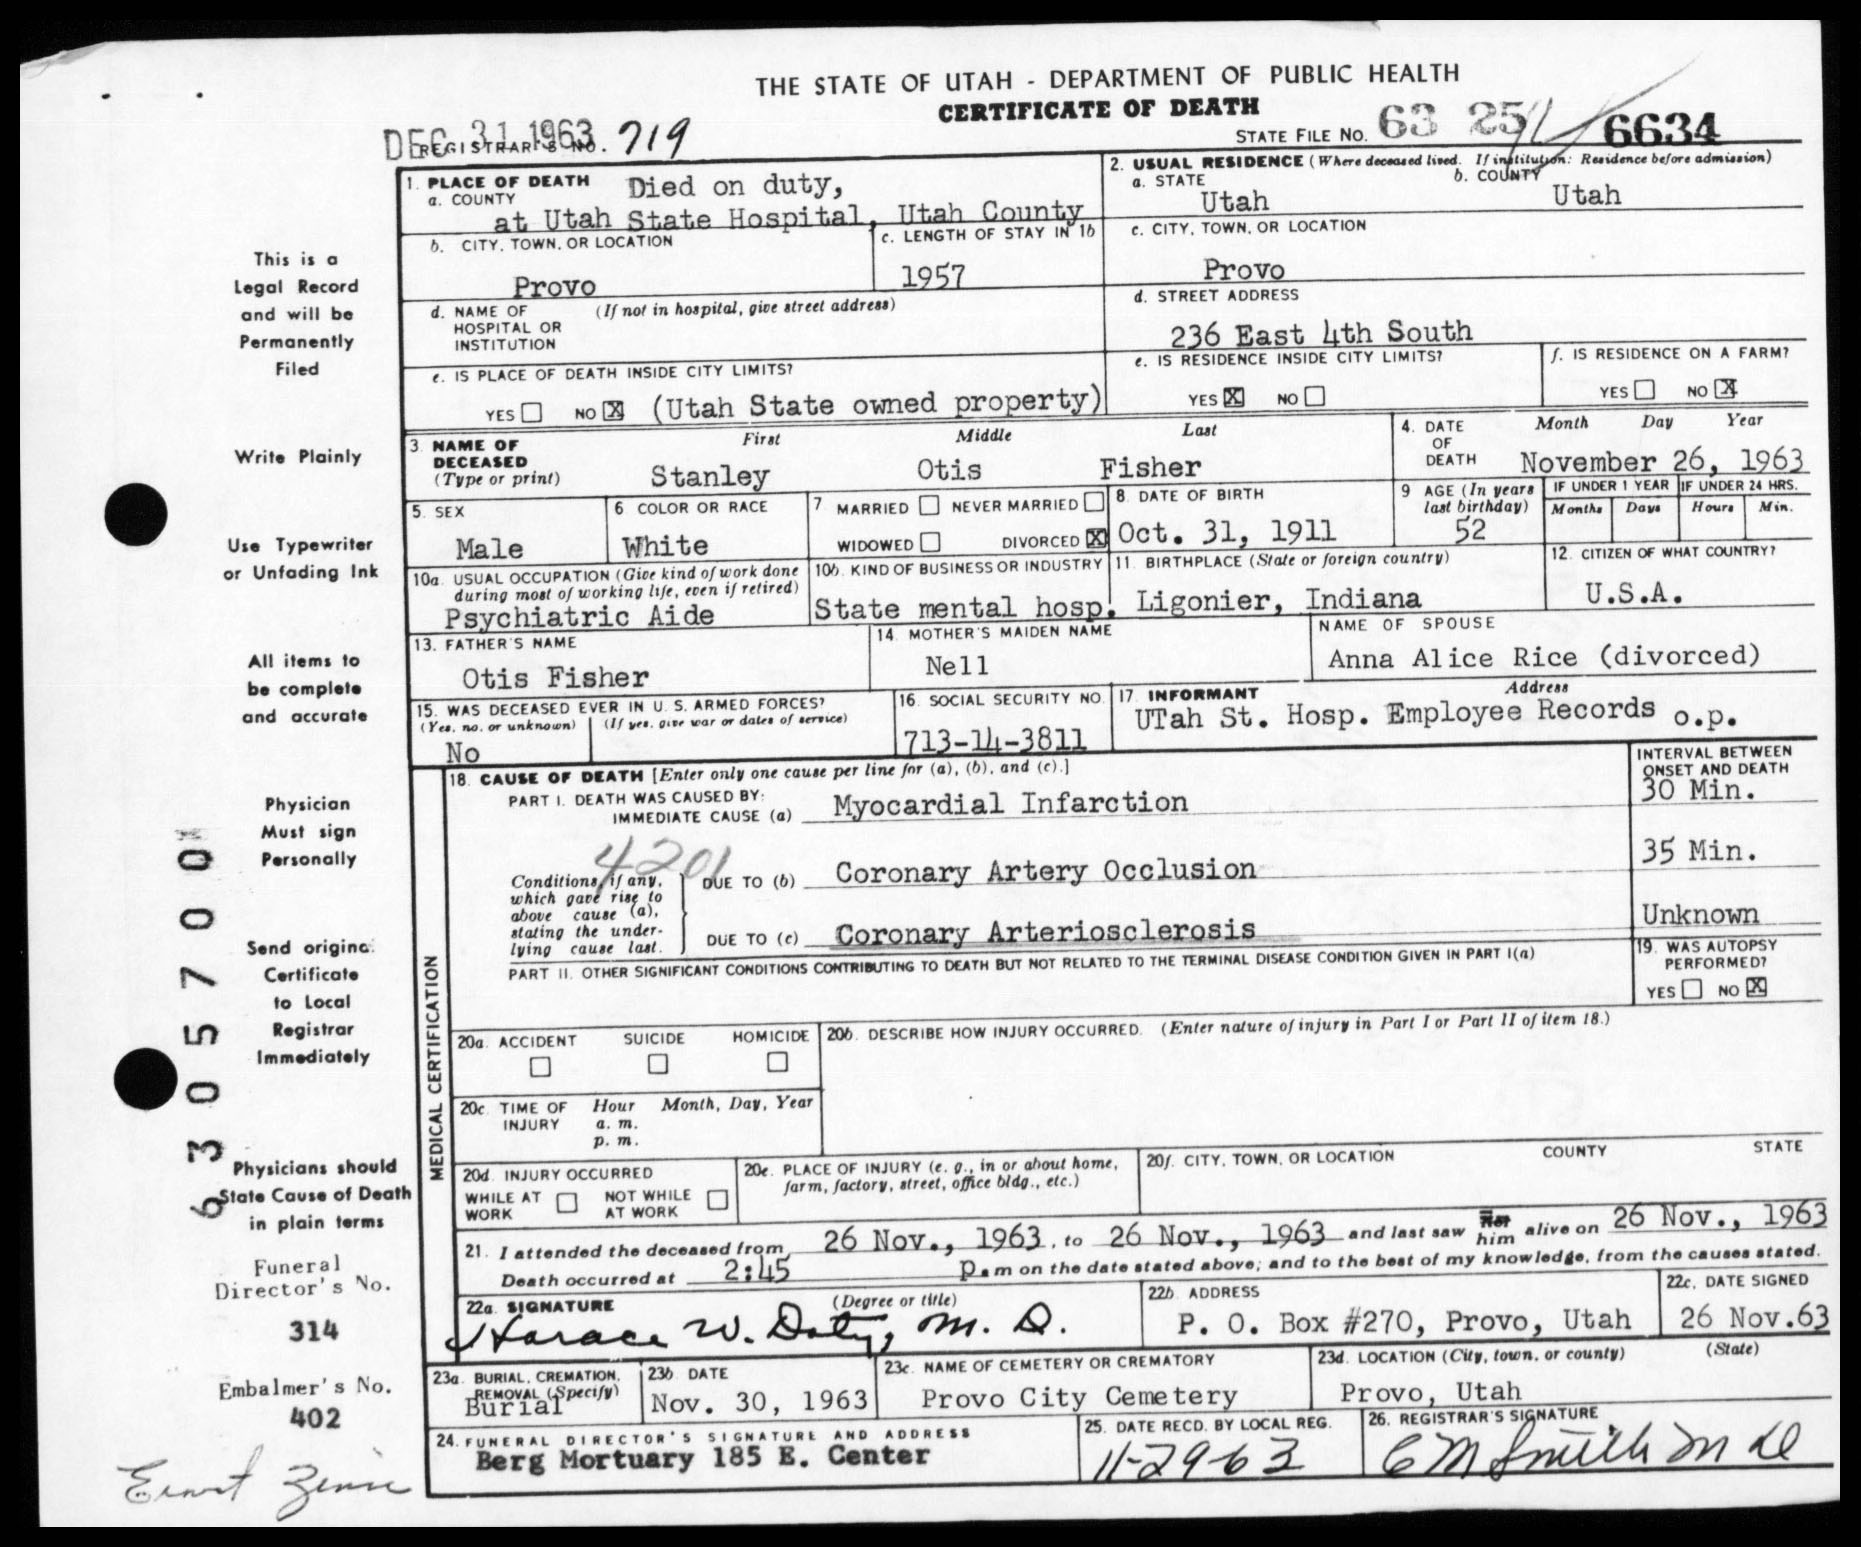 THE STATE OF UTAH - DEPARTMENT OF PUBLIC HEALTH
CERTIFICATE OF DEATH
DEC 31 1963
REGISTRAR'S NO. 719
STATE FILE NO. 63 25 6634
1. PLACE OF DEATH Died on duty,
a. COUNTY
at Utah State Hospital, Utah County
2. USUAL RESIDENCE (Where deceased lived. If institution: Residence before admission)
a. STATE Utah
b. COUNTY Utah
b. CITY, TOWN, OR LOCATION
Provo
c. LENGTH OF STAY IN 1b
1957
c. CITY, TOWN, OR LOCATION
Provo
d. NAME OF HOSPITAL OR INSTITUTION (If not in hospital, give street address)
d. STREET ADDRESS
236 East 4th South
e. IS PLACE OF DEATH INSIDE CITY LIMITS?
YES NO X (Utah State owned property)
e. IS RESIDENCE INSIDE CITY LIMITS?
YES X NO
f. IS RESIDENCE ON A FARM?
YES NO X
3. NAME OF DECEASED (Type or print)
First Middle Last
Stanley Otis Fisher
4. DATE OF DEATH
Month Day Year
November 26, 1963
5. SEX
Male
6 COLOR OR RACE
White
7 MARRIED NEVER MARRIED
WIDOWED DIVORCED X
8. DATE OF BIRTH
Oct. 31, 1911
9 AGE (In years last birthday)
52
IF UNDER 1 YEAR
Months Days
IF UNDER 24 HRS.
Hours Min.
10a. USUAL OCCUPATION (Give kind of work done during most of working life, even if retired)
Psychiatric Aide
10b. KIND OF BUSINESS OR INDUSTRY
State mental hosp.
11. BIRTHPLACE (State or foreign country)
Ligonier, Indiana
12. CITIZEN OF WHAT COUNTRY?
U.S.A.
13. FATHER'S NAME
Otis Fisher
14. MOTHER'S MAIDEN NAME
Nell
NAME OF SPOUSE
Anna Alice Rice (divorced)
15. WAS DECEASED EVER IN U. S. ARMED FORCES?
(Yes, no, or unknown) (If yes, give war or dates of service)
No
16. SOCIAL SECURITY NO.
713-14-3811
17. INFORMANT Address
UTah St. Hosp. Employee Records o.p.
MEDICAL CERTIFICATION
18. CAUSE OF DEATH [Enter only one cause per line for (a), (b), and (c).]
INTERVAL BETWEEN ONSET AND DEATH
PART I. DEATH WAS CAUSED BY:
IMMEDIATE CAUSE (a) Myocardial Infarction 30 Min.
4201
Conditions, if any, which gave rise to above cause (a), stating the underlying cause last.
DUE TO (b) Coronary Artery Occlusion 35 Min.
DUE TO (c) Coronary Arteriosclerosis Unknown
PART II. OTHER SIGNIFICANT CONDITIONS CONTRIBUTING TO DEATH BUT NOT RELATED TO THE TERMINAL DISEASE CONDITION GIVEN IN PART I(a)
19. WAS AUTOPSY PERFORMED?
YES NO X
20a. ACCIDENT SUICIDE HOMICIDE
20b. DESCRIBE HOW INJURY OCCURRED. (Enter nature of injury in Part I or Part II of item 18.)
20c. TIME OF INJURY Hour Month, Day, Year
a. m.
p. m.
20d. INJURY OCCURRED
WHILE AT WORK NOT WHILE AT WORK
20e. PLACE OF INJURY (e. g., in or about home, farm, factory, street, office bldg., etc.)
20f. CITY, TOWN, OR LOCATION COUNTY STATE
21. I attended the deceased from 26 Nov., 1963, to 26 Nov., 1963 and last saw him alive on 26 Nov., 1963
Death occurred at 2:45 p.m on the date stated above; and to the best of my knowledge, from the causes stated.
22a. SIGNATURE (Degree or title)
Horace W. Doty, M. D.
22b. ADDRESS
P. O. Box #270, Provo, Utah
22c. DATE SIGNED
26 Nov.63
23a. BURIAL, CREMATION, REMOVAL (Specify)
Burial
23b. DATE
Nov. 30, 1963
23c. NAME OF CEMETERY OR CREMATORY
Provo City Cemetery
23d. LOCATION (City, town, or county) (State)
Provo, Utah
24. FUNERAL DIRECTOR'S SIGNATURE AND ADDRESS
Berg Mortuary 185 E. Center
25. DATE RECD. BY LOCAL REG.
11-29-63
26. REGISTRAR'S SIGNATURE
C M Smith M D
This is a
Legal Record
and will be
Permanently
Filed
Write Plainly
Use Typewriter
or Unfading Ink
All items to
be complete
and accurate
Physician
Must sign
Personally
Send original
Certificate
to Local
Registrar
Immediately
Physicians should
State Cause of Death
in plain terms
6305700
Funeral
Director's No.
314
Embalmer's No.
402